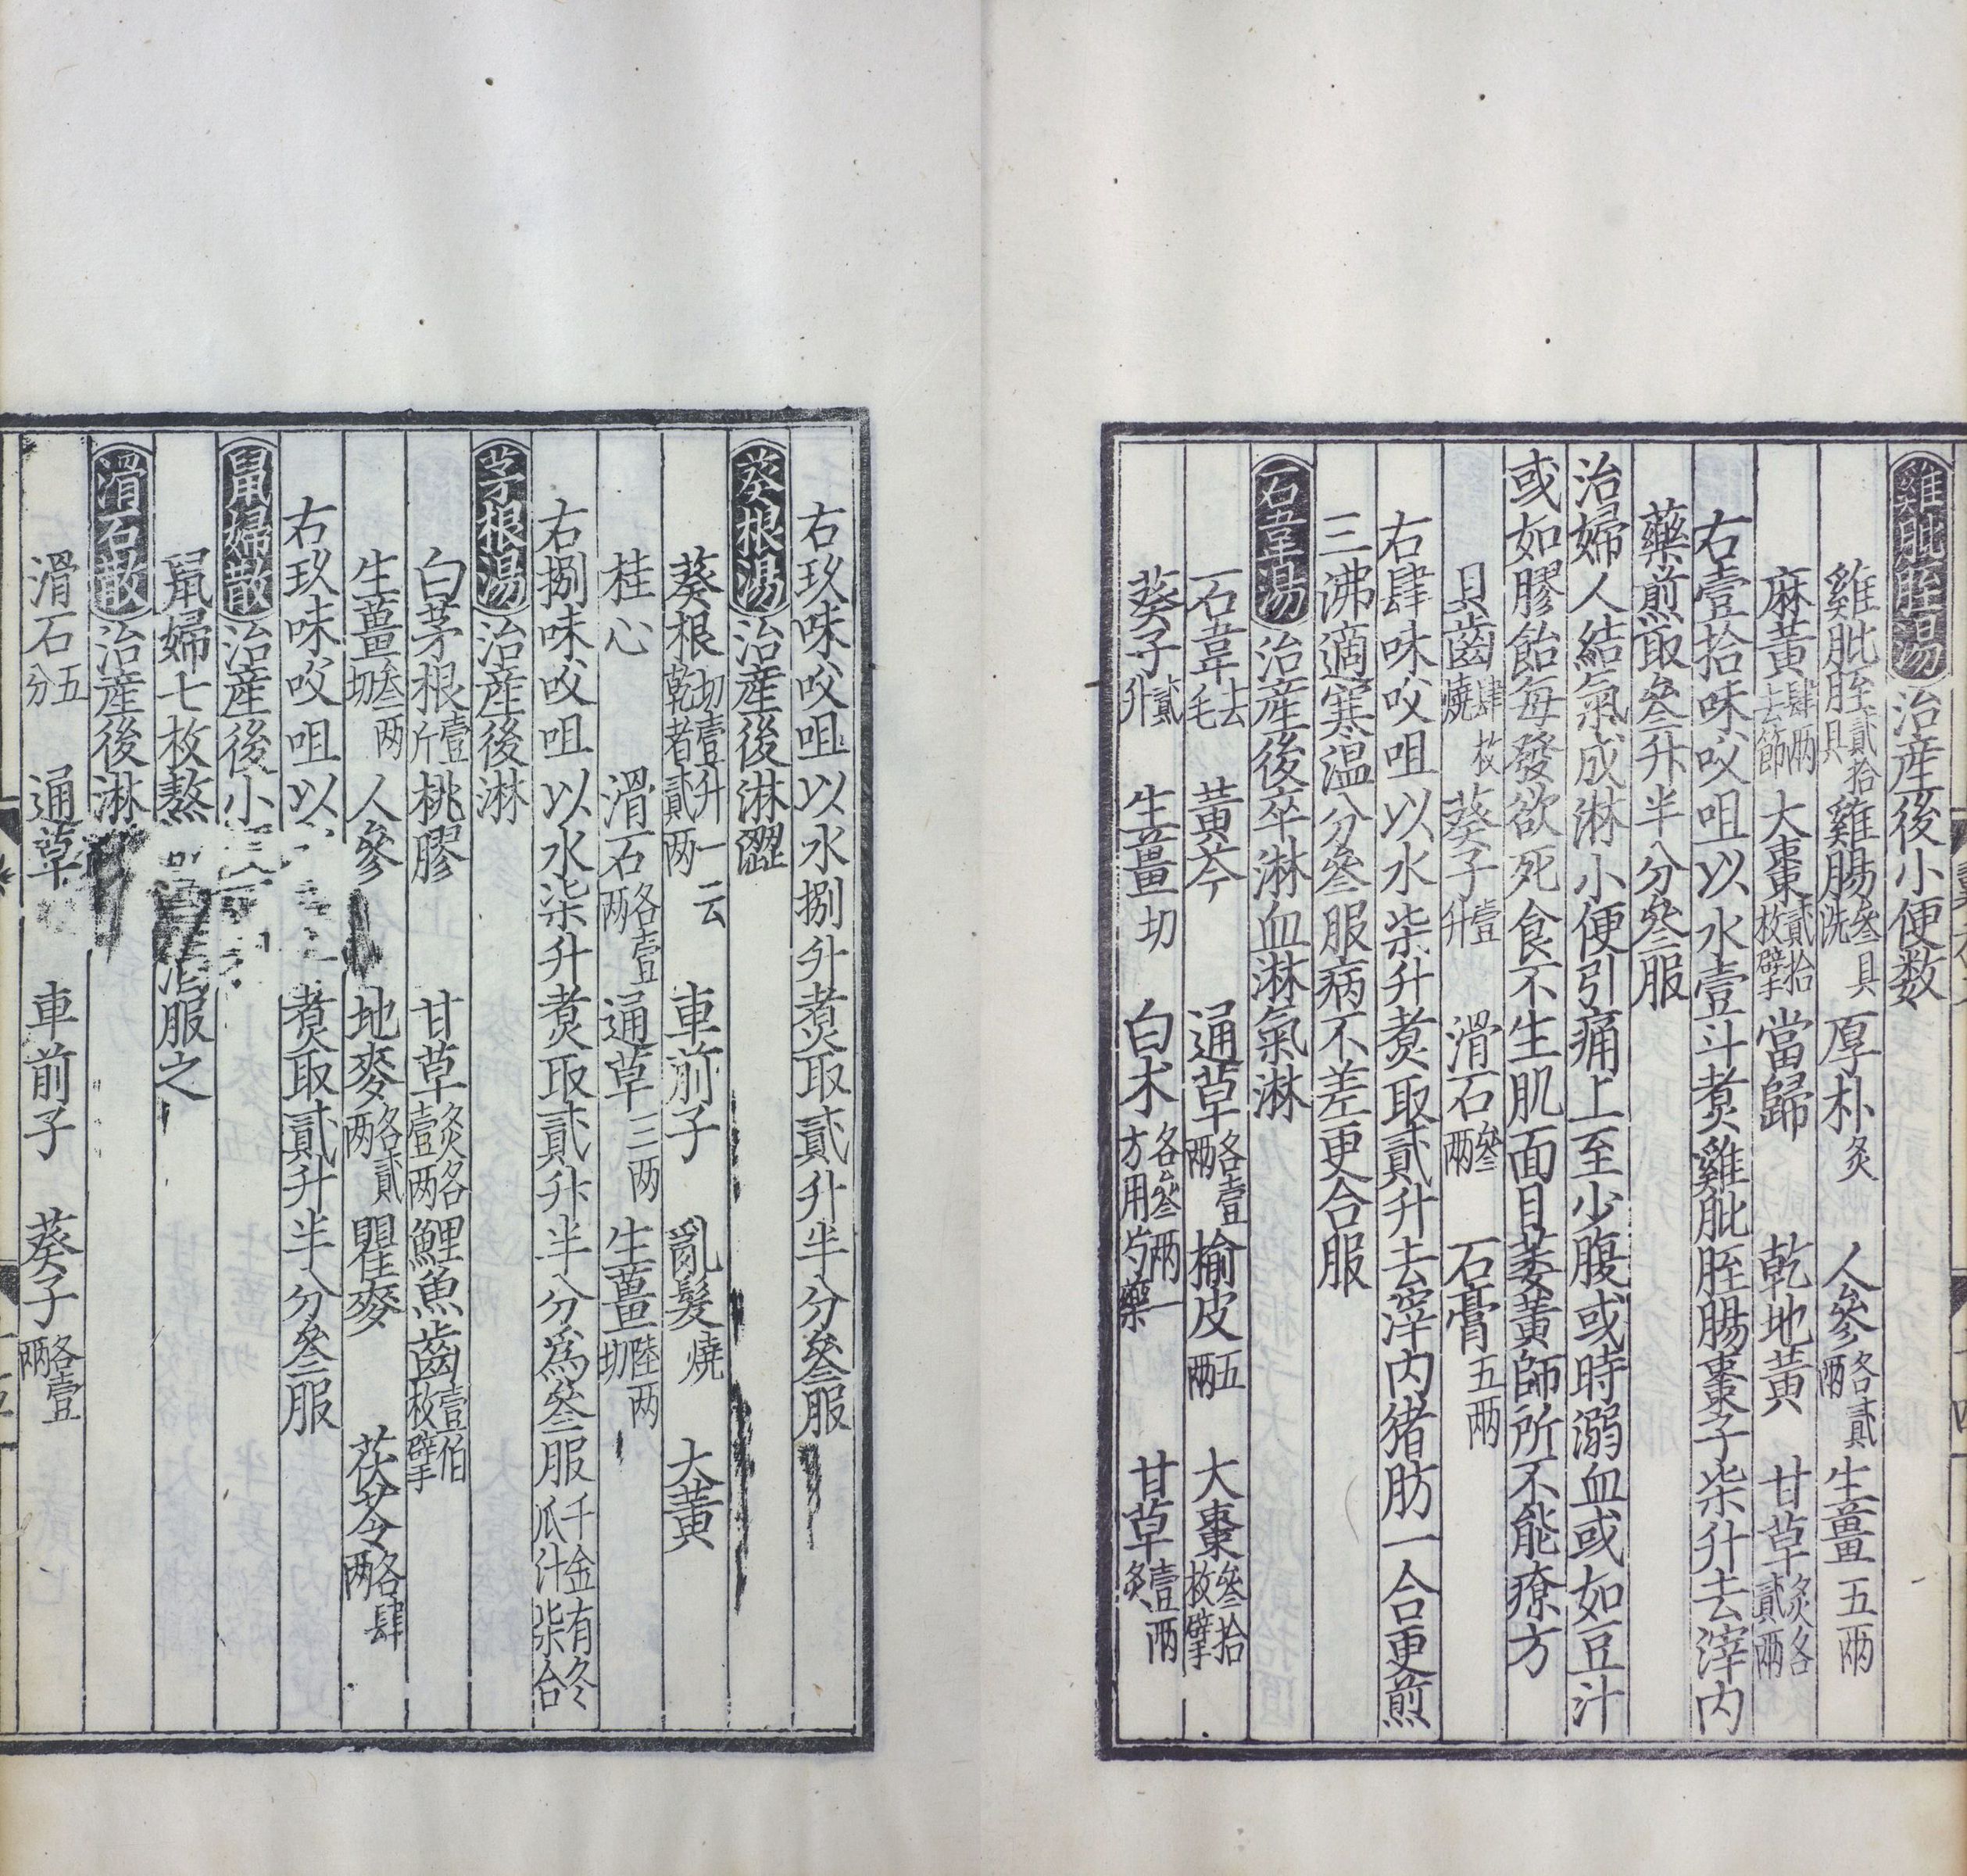 雞肶胵湯治産後小便数
雞肶胵貳拾具雞腸叄具洗厚朴炙人參各貳兩生薑五兩
麻黃肆兩去節大棗貳拾枚擘當歸乾地黃甘草炙各貳兩
右壹拾味㕮咀以水壹斗煮雞肶胵腸棗子柒升去滓内
藥煎取叄升半分叄服
治婦人結氣成淋小便引痛上至少腹或時溺血或如豆汁
或如膠飴每發欲死食不生肌面目萎黃師所不能療方
貝齒肆枚燒葵子壹升滑石叄兩石膏五兩
右肆味㕮咀以水柒升煮取貳升去滓内猪肪一合更煎
三沸適寒温分叄服病不差更合服
石韋湯治産後卒淋血淋氣淋
石韋去毛黃芩通草各壹兩榆皮五兩大棗叄拾枚擘
葵子貳升生薑切白术各叄兩一方用芍藥甘草壹兩炙
右玖味㕮咀以水捌升煮取貳升半分叄服
葵根湯治産後淋澀
葵根切壹升一云乾者貳两車前子亂髮燒大黃
桂心滑石各壹兩通草三两生薑陸两切
右捌味㕮咀以水柒升煮取貳升半分爲叄服千金有冬瓜汁柒合
茅根湯治産後淋
白茅根壹斤桃膠甘草炙各壹两鯉魚齒壹伯枚擘
生薑叄两切人參地麥各貳两瞿麥茯苓各肆两
右玖味㕮咀以煮取貳升半分叄服
鼠婦散治産後小
鼠婦七枚熬服之
滑石散治産後淋
滑石五分通草車前子葵子各壹兩